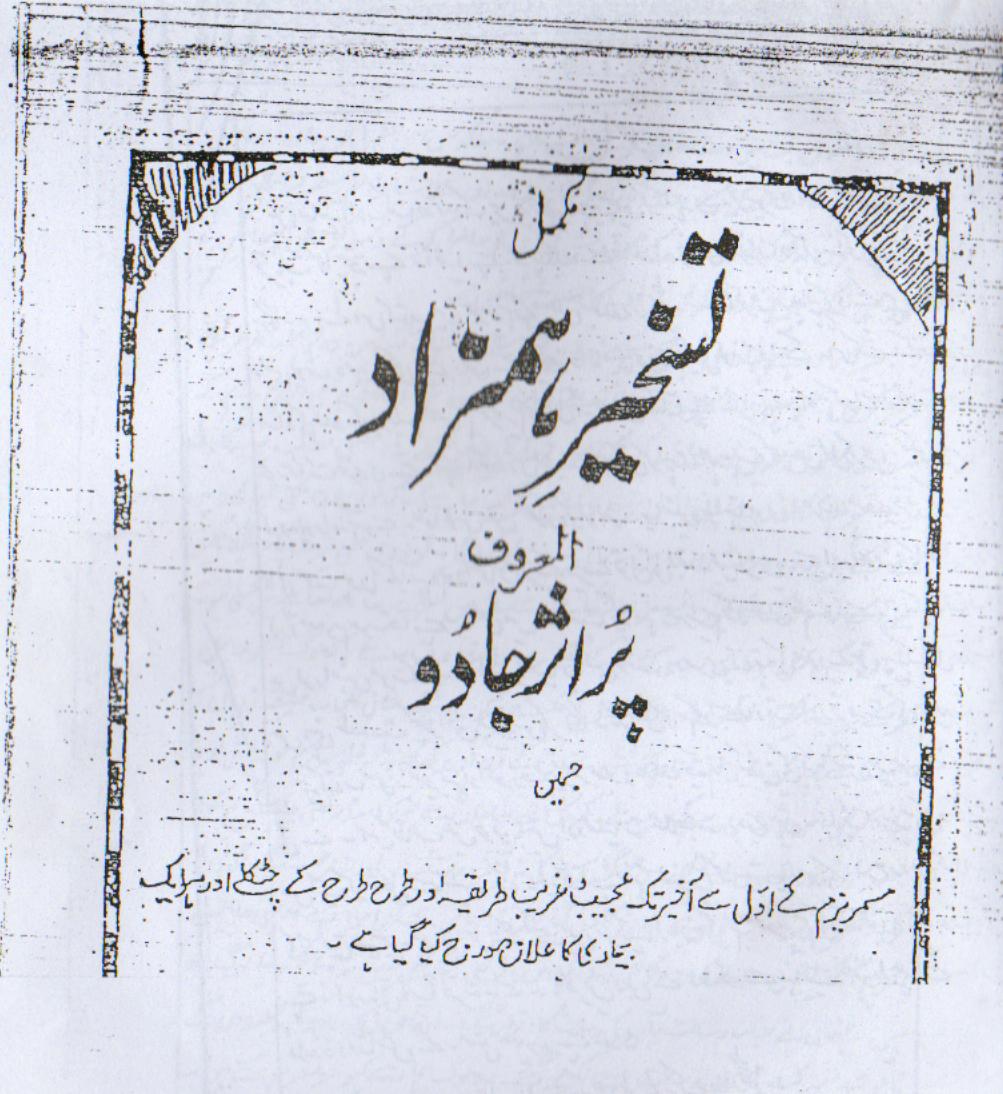 مکمل
تسخیر ہمزاد
المعروف
پُراثر جادُو
جسمیں
مسمریزم کے اوّل سے آخیر تک عجیب و غریب طریقے اور طرح طرح کے چٹکلے اور ہرایک
بیماری کا علاج درج کیا گیا ہے ۔